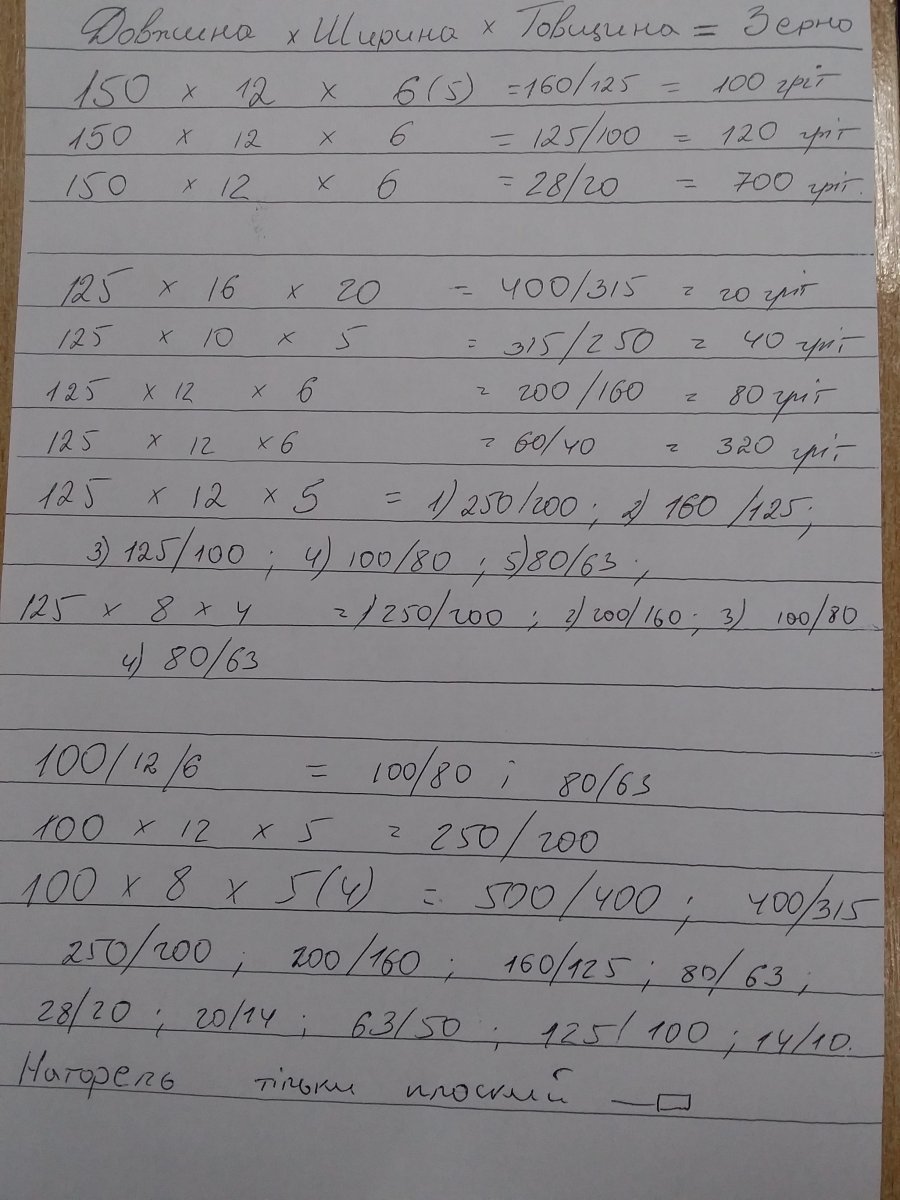 Довжина x Ширина x Товщина = Зерно
150 x 12 x 6(5) =160/125 = 100 гріт
150 x 12 x 6 = 125/100 = 120 гріт
150 x 12 x 6 = 28/20 = 700 гріт.
125 x 16 x 20 = 400/315 = 20 гріт
125 x 10 x 5 = 315/250 = 40 гріт
125 x 12 x 6 = 200/160 = 80 гріт
125 x 12 x 6 = 60/40 = 320 гріт
125 x 12 x 5 = 1) 250/200; 2) 160/125;
3) 125/100; 4) 100/80; 5) 80/63;
125 x 8 x 4 = 1) 250/200; 2) 200/160; 3) 100/80
4) 80/63
100/12/6 = 100/80 ; 80/63
100 x 12 x 5 = 250/200
100 x 8 x 5(4) = 500/400; 400/315
250/200; 200/160; 160/125; 80/63;
28/20; 20/14; 63/50; 125/100; 14/10.
Нагорель тільки плоский